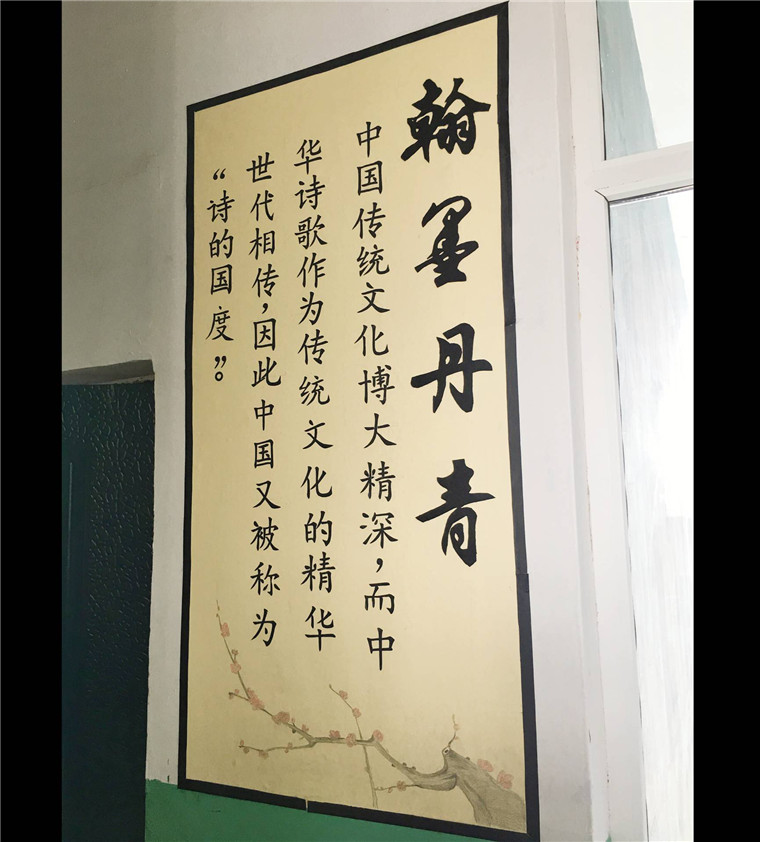 翰墨丹青
中国传统文化博大精深，而中
华诗歌作为传统文化的精华
世代相传，因此中国又被称为
“诗的国度”。